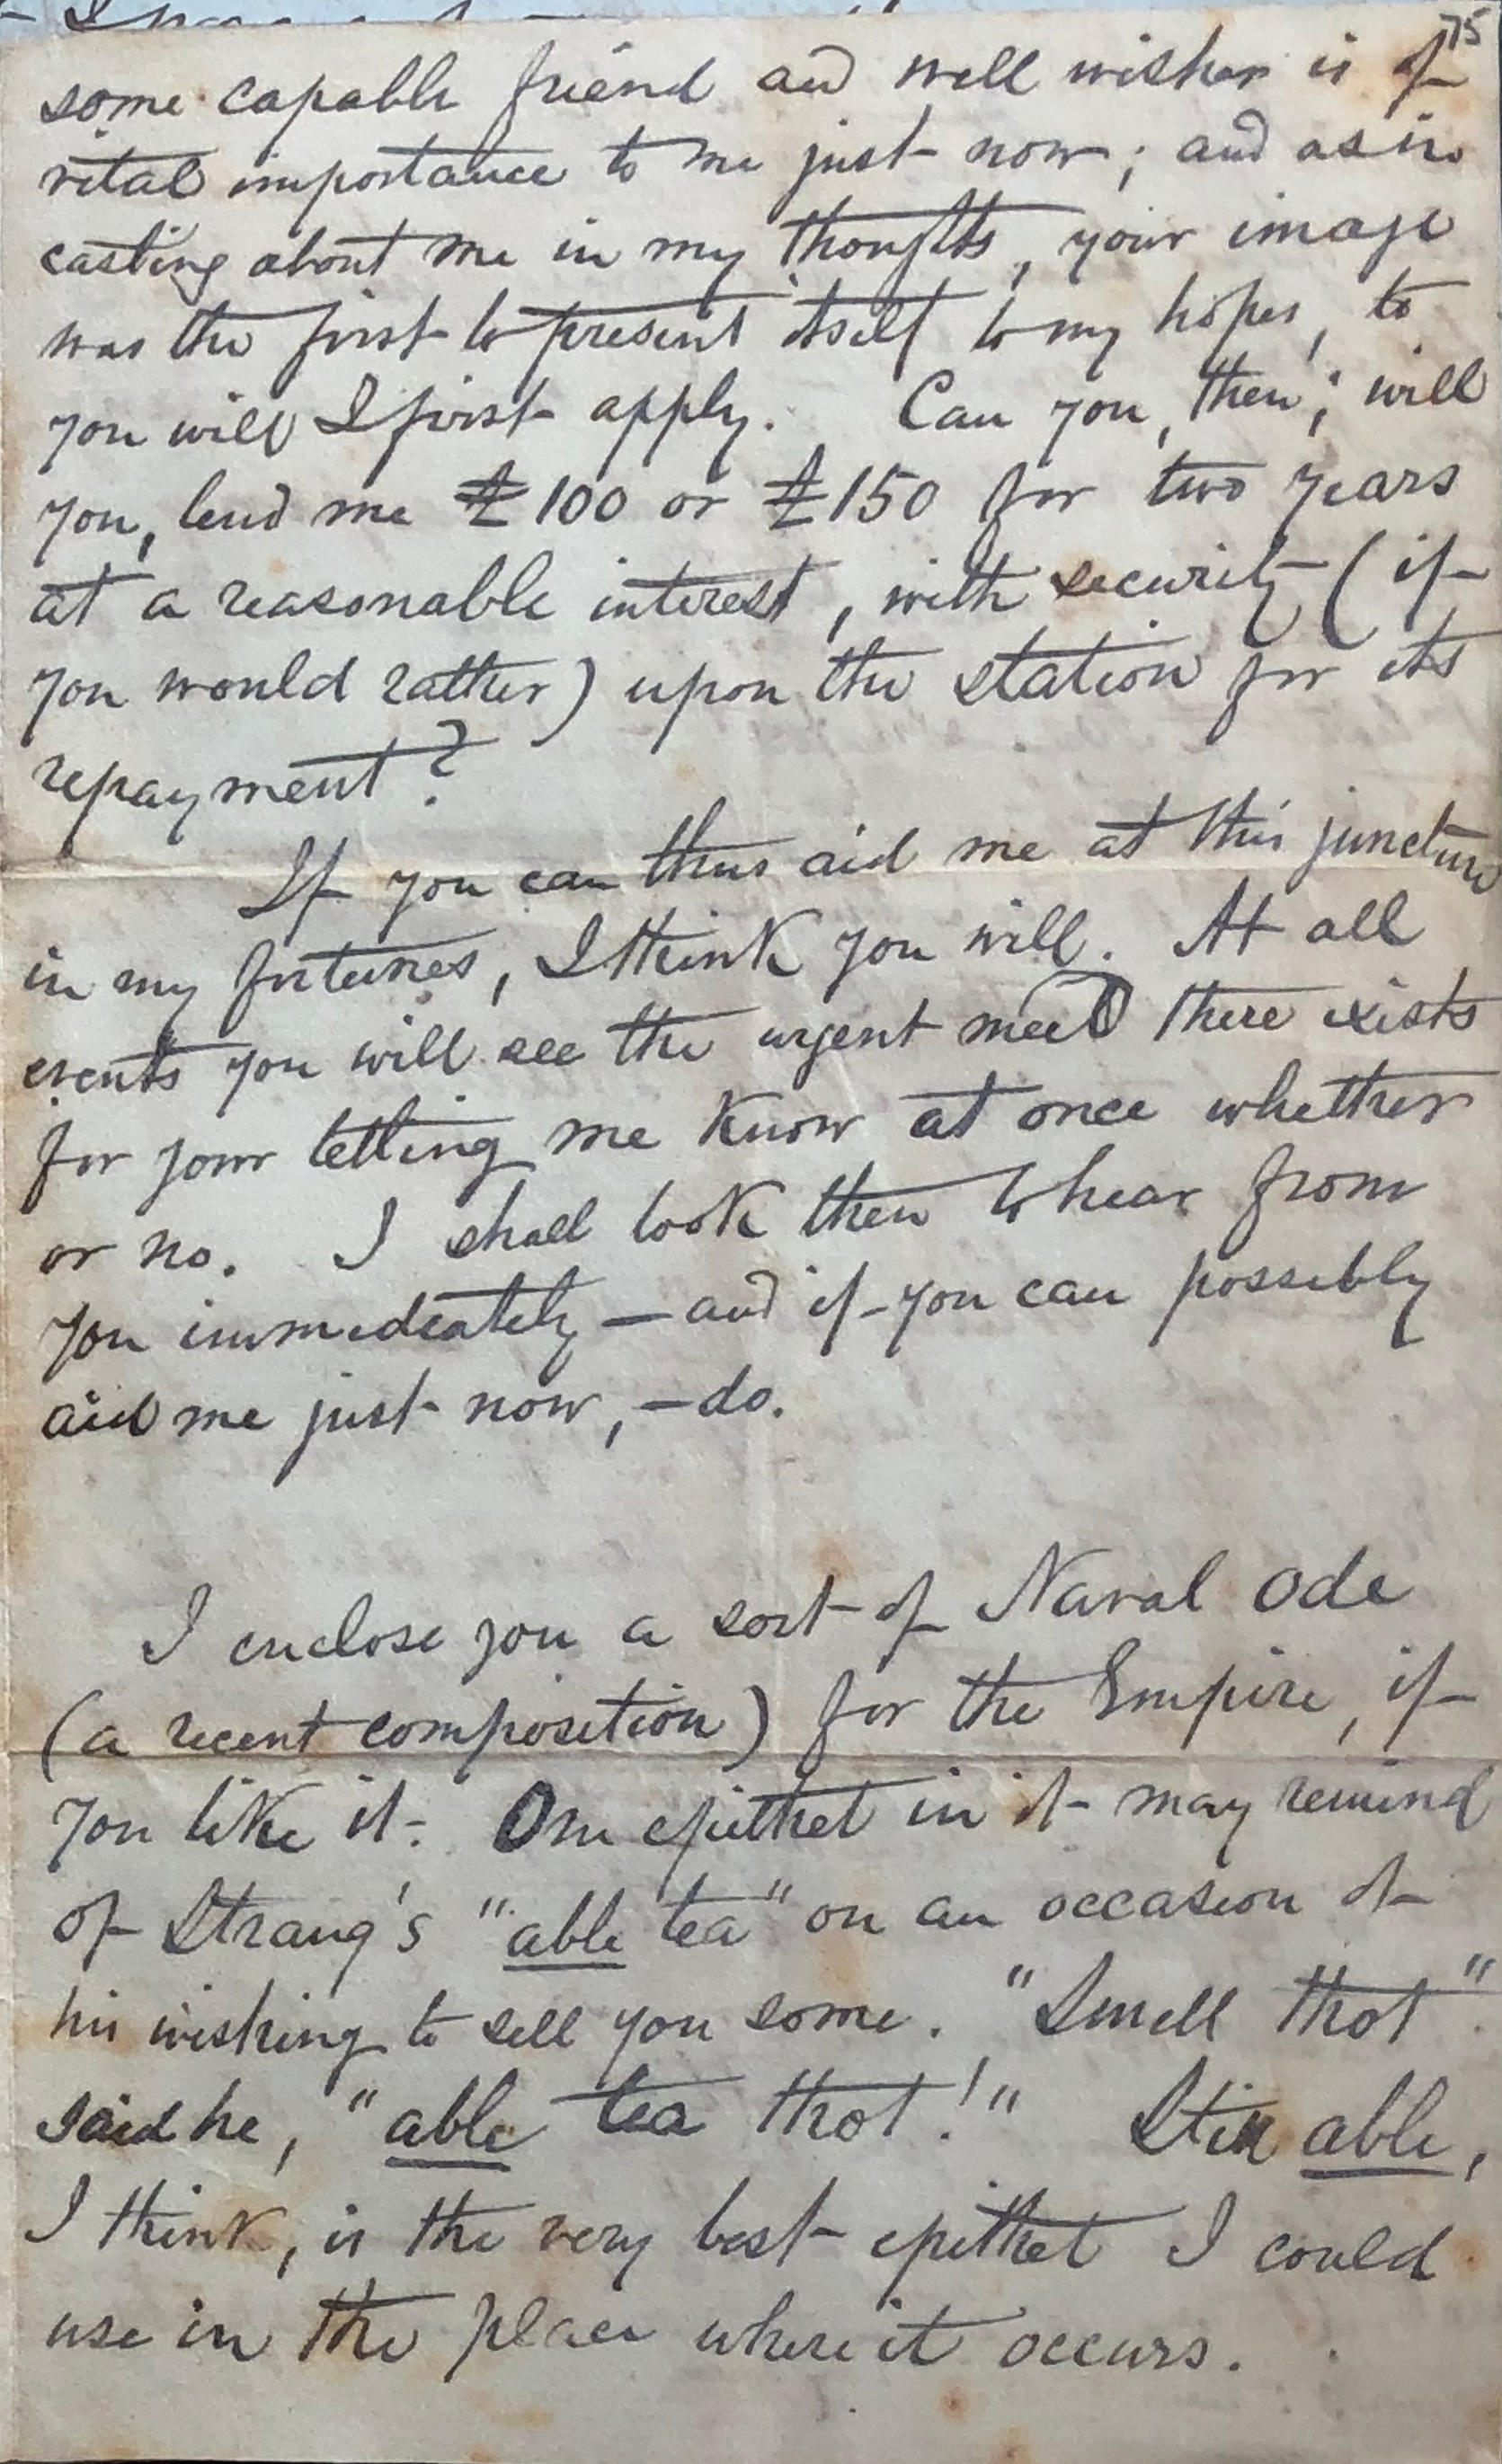 75
some capable friend and well wisher is of
vital importance to me just now; and as in
casting about me in my thoughts, your image
was the first to present itself to my hopes, to
you will I first apply. Can you, then; will
you, lend me £100 or £150 for two years
at a reasonable interest, with security (if
you would rather) upon the station for its
repayment?
If you can thus aid me at this juncture
in my fortunes, I think you will. At all
events you will see the urgent need there exists
for your letting me know at once whether
or no. I shall look then to hear from
you immediately — and if you can possibly
aid me just now, — do.
I enclose you a sort of Naval Ode
(a recent composition) for the Empire, if
you like it. One epithet in it may remind
of Strang's "able tea" on an occasion of
his wishing to sell you some. "Smell thot"
said he, "able tea thot!" Still able,
I think, is the very best epithet I could
use in the place where it occurs.